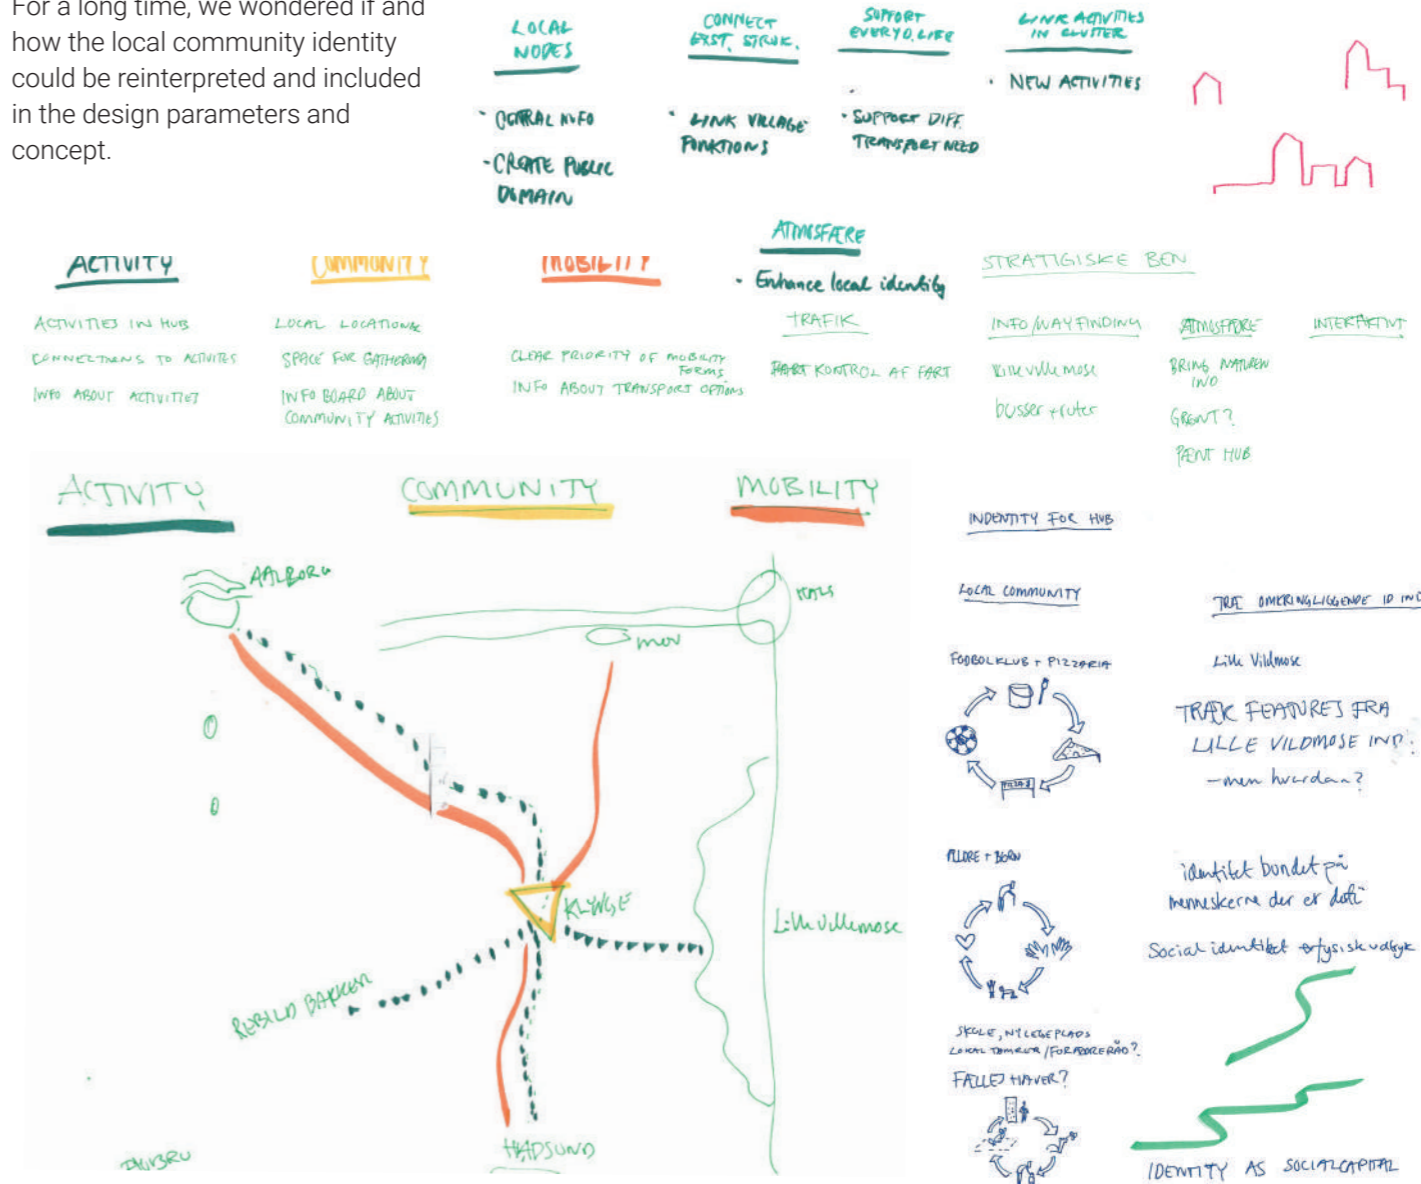 For a long time, we wondered if and
how the local community identity
could be reinterpreted and included
in the design parameters and
concept.
LOCAL
NODES
CENTRAL INFO
-CREATE PUBLIC
DOMAIN
CONNECT
EXST. STRUK.
LINK VILLAGE
FUNKTIONS
SUPPORT
EVERYD. LIFE
SUPPORT DIFF.
TRANSPORT NEED
LINK ACTIVITIES
IN CLUSTER
NEW ACTIVITIES
ATMOSFÆRE
Enhance local identity
ACTIVITY
ACTIVITIES IN HUB
CONNECTIONS TO ACTIVITES
INFO ABOUT ACTIVITIES
COMMUNITY
LOCAL LOCATIONS
SPACE FOR GATHERING
INFO BOARD ABOUT
COMMUNITY ACTIVITIES
MOBILITY
CLEAR PRIORITY OF MOBILITY
FORMS
INFO ABOUT TRANSPORT OPTIONS
TRAFIK
KONTROL AF FART
STRATIGISKE BEN
INFO/WAYFINDING
Lille villemose
busser + ruter
ATMOSFÆRE
BRING NATUREN
IND
GRØNT?
PÆNT HUB
INTERAKTIVT
ACTIVITY
COMMUNITY
MOBILITY
AALBORG
HALS
MOU
KLYNGE
Lille villemose
REBILD BAKKER
HADSUND
INDENTITY FOR HUB
LOCAL COMMUNITY
FODBOLKLUB + PIZZARIA
PIZZA
ÆLDRE + BØRN
SKOLE, NY LEGEPLADS
LOKAL /FORÆLDRERÅD?
FÆLLES HAVER?
OMKRINGLIGGENDE ID IND
Lille Vildmose
TRÆK FEATURES FRA
LILLE VILDMOSE IND.
-men hvordan?
identitet bundet på
menneskerne der er
Social identitet fysisk udtryk
IDENTITY AS SOCIALCAPITAL